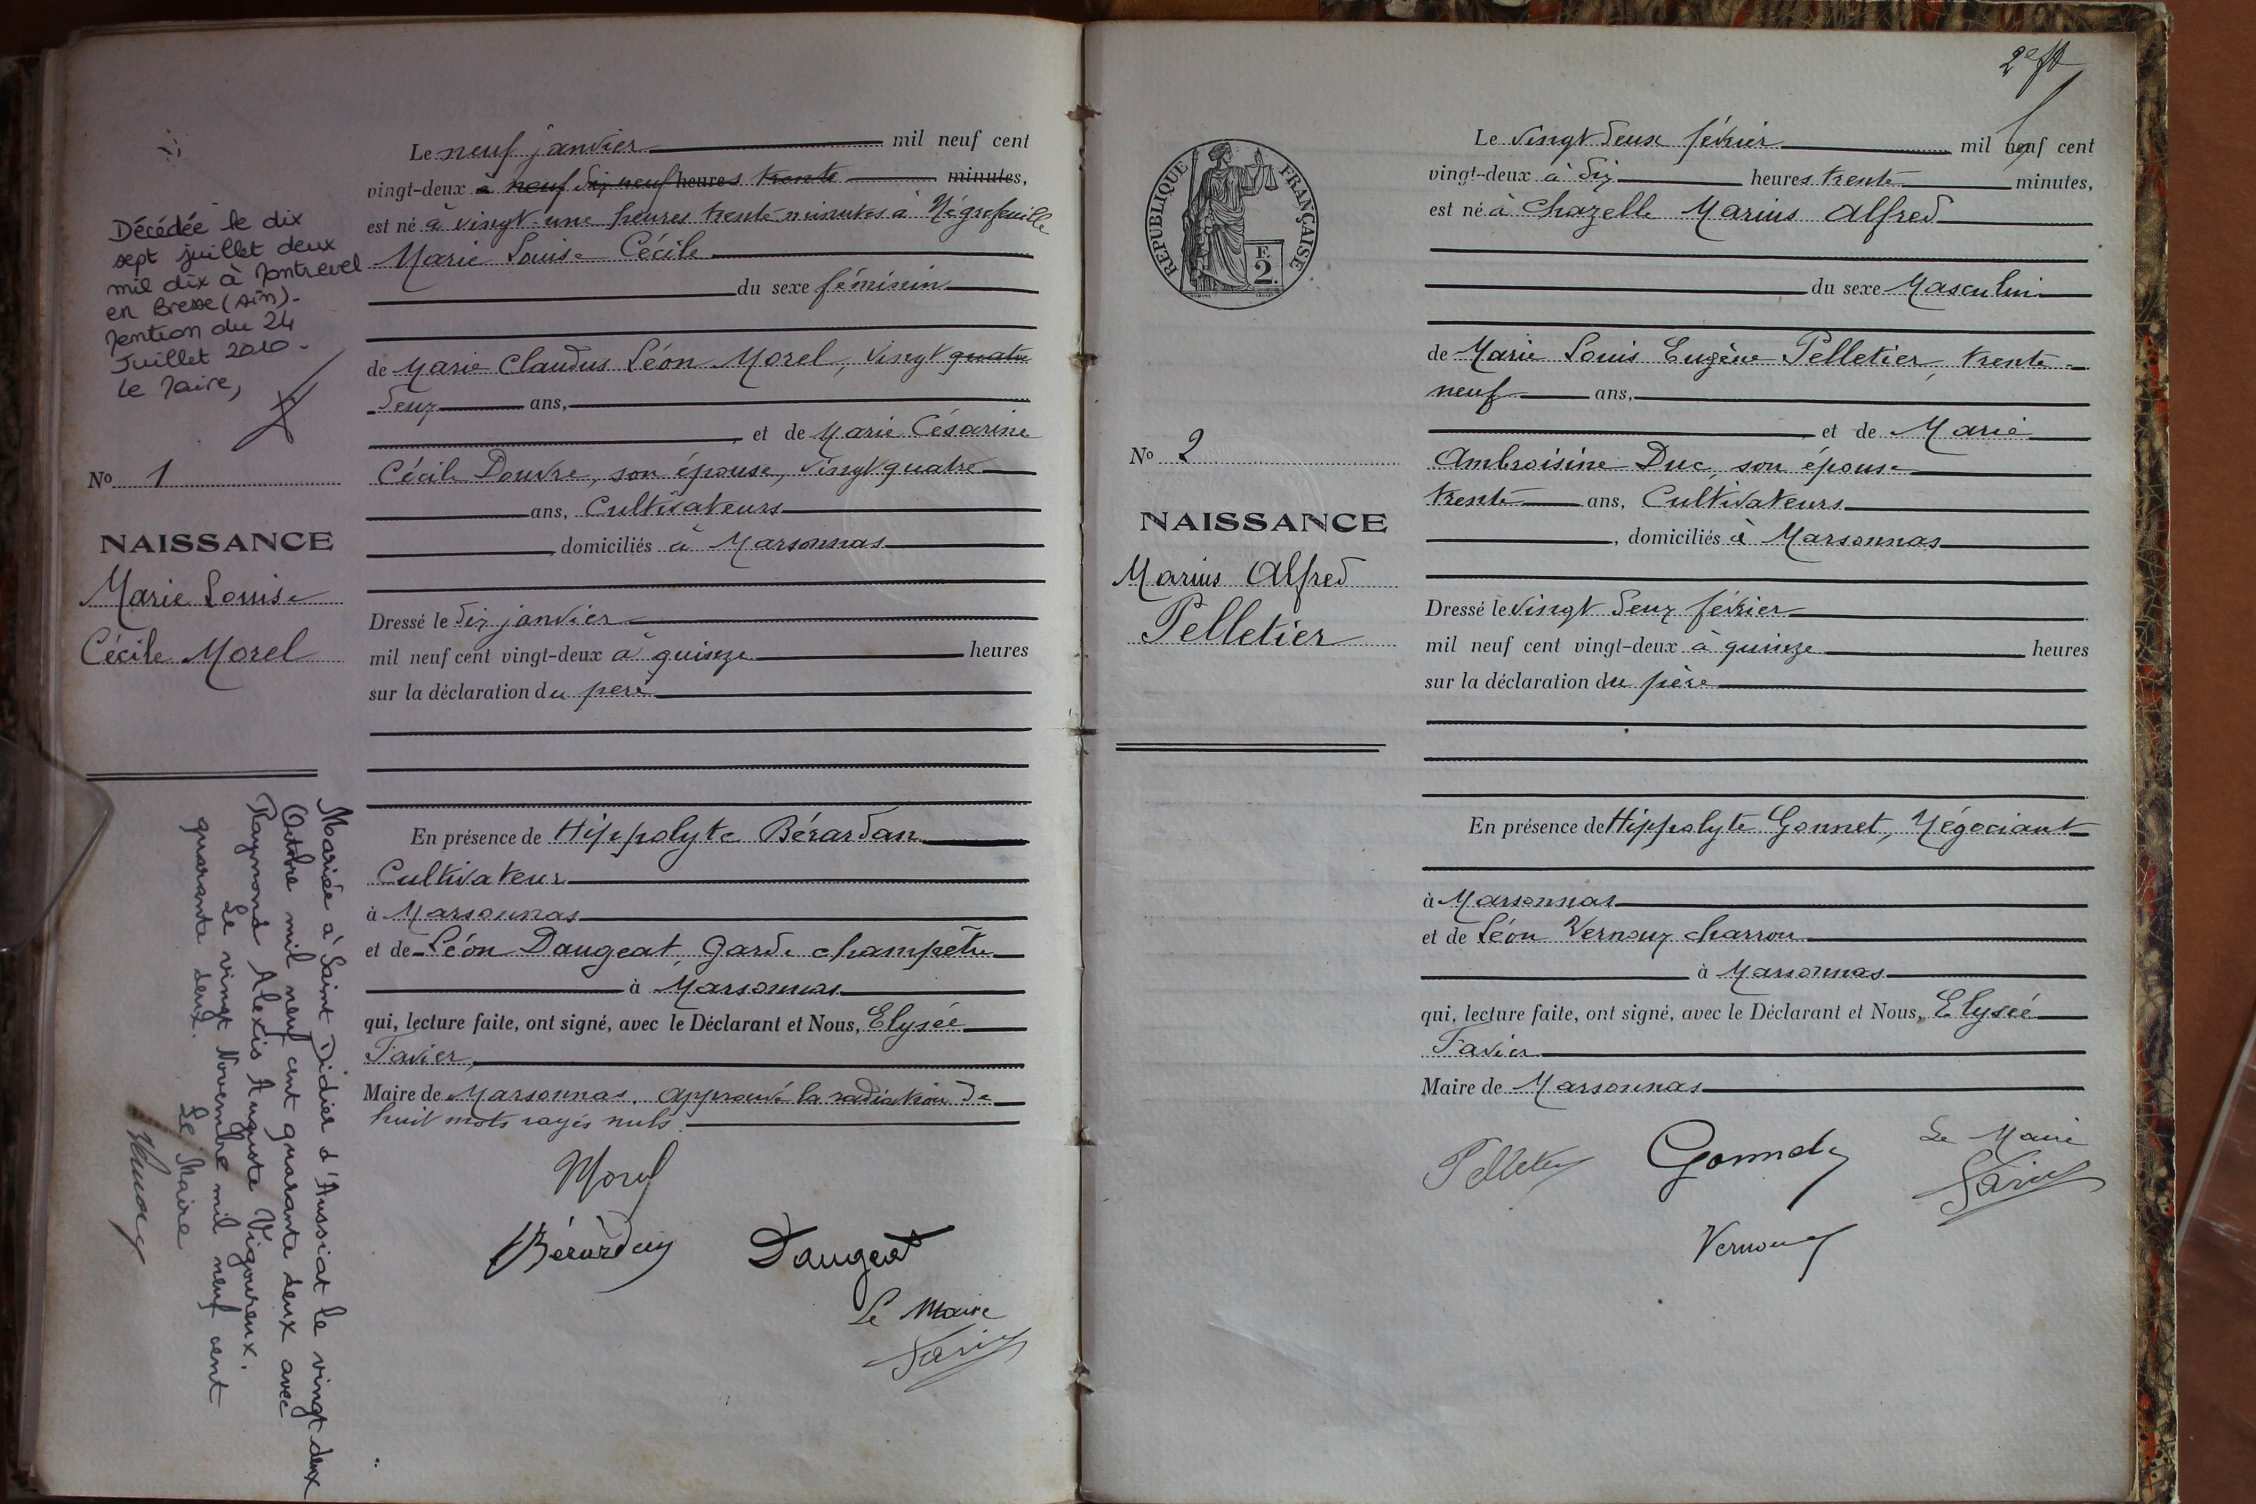 Décédée le dix
sept juillet deux
mil dix à Montrevel
en Bresse (Ain).
Mention du 24
Juillet 2010.
Le Maire,
No 1
NAISSANCE
Marie Louise
Cécile Morel
Mariée à Saint Didier d'Aussiat le vingt deux
Octobre mil neuf cent quarante deux avec
Raymond Alexis Auguste Vigoureux.
Le vingt Novembre mil neuf cent
quarante deux. Le Maire
Le neuf janvier mil neuf cent
vingt-deux à neuf dix neuf heures trente minutes,
est né à vingt une heures trente minutes à Négrefeuille
Marie Louise Cécile
du sexe féminin
de Marie Claudus Léon Morel, vingt quatre
deux ans,
et de Marie Césarine
Cécile Douvre, son épouse, vingt quatre
ans, Cultivateurs
domiciliés à Marsonnas
Dressé le dix janvier
mil neuf cent vingt-deux à quinze heures
sur la déclaration du père
En présence de Hippolyte Bérardan
Cultivateur
à Marsonnas
et de Léon Daugeat, Garde champêtre
à Marsonnas
qui, lecture faite, ont signé, avec le Déclarant et Nous, Elysée
Favier,
Maire de Marsonnas. approuvé la radiation de
huit mots rayés nuls.
Morel
Bérardan Daugeat
Le Maire
Favier
2e ft
REPUBLIQUE FRANÇAISE
F.
2.
No 2
NAISSANCE
Marius Alfred
Pelletier
Le vingt deux février mil neuf cent
vingt-deux à dix heures trente minutes,
est né à Chazelle Marius Alfred
du sexe Masculin
de Marie Louis Eugène Pelletier, trente-
neuf ans,
et de Marie
Ambroisine Duc, son épouse
trente ans, Cultivateurs
, domiciliés à Marsonnas
Dressé le vingt deux février
mil neuf cent vingt-deux à quinze heures
sur la déclaration du père
En présence de Hippolyte Gonnet, Négociant
à Marsonnas
et de Léon Vernoux charron
à Marsonnas
qui, lecture faite, ont signé, avec le Déclarant et Nous, Elysée
Favier
Maire de Marsonnas
Pelletier Gonnet Le Maire
Favier
Vernoux